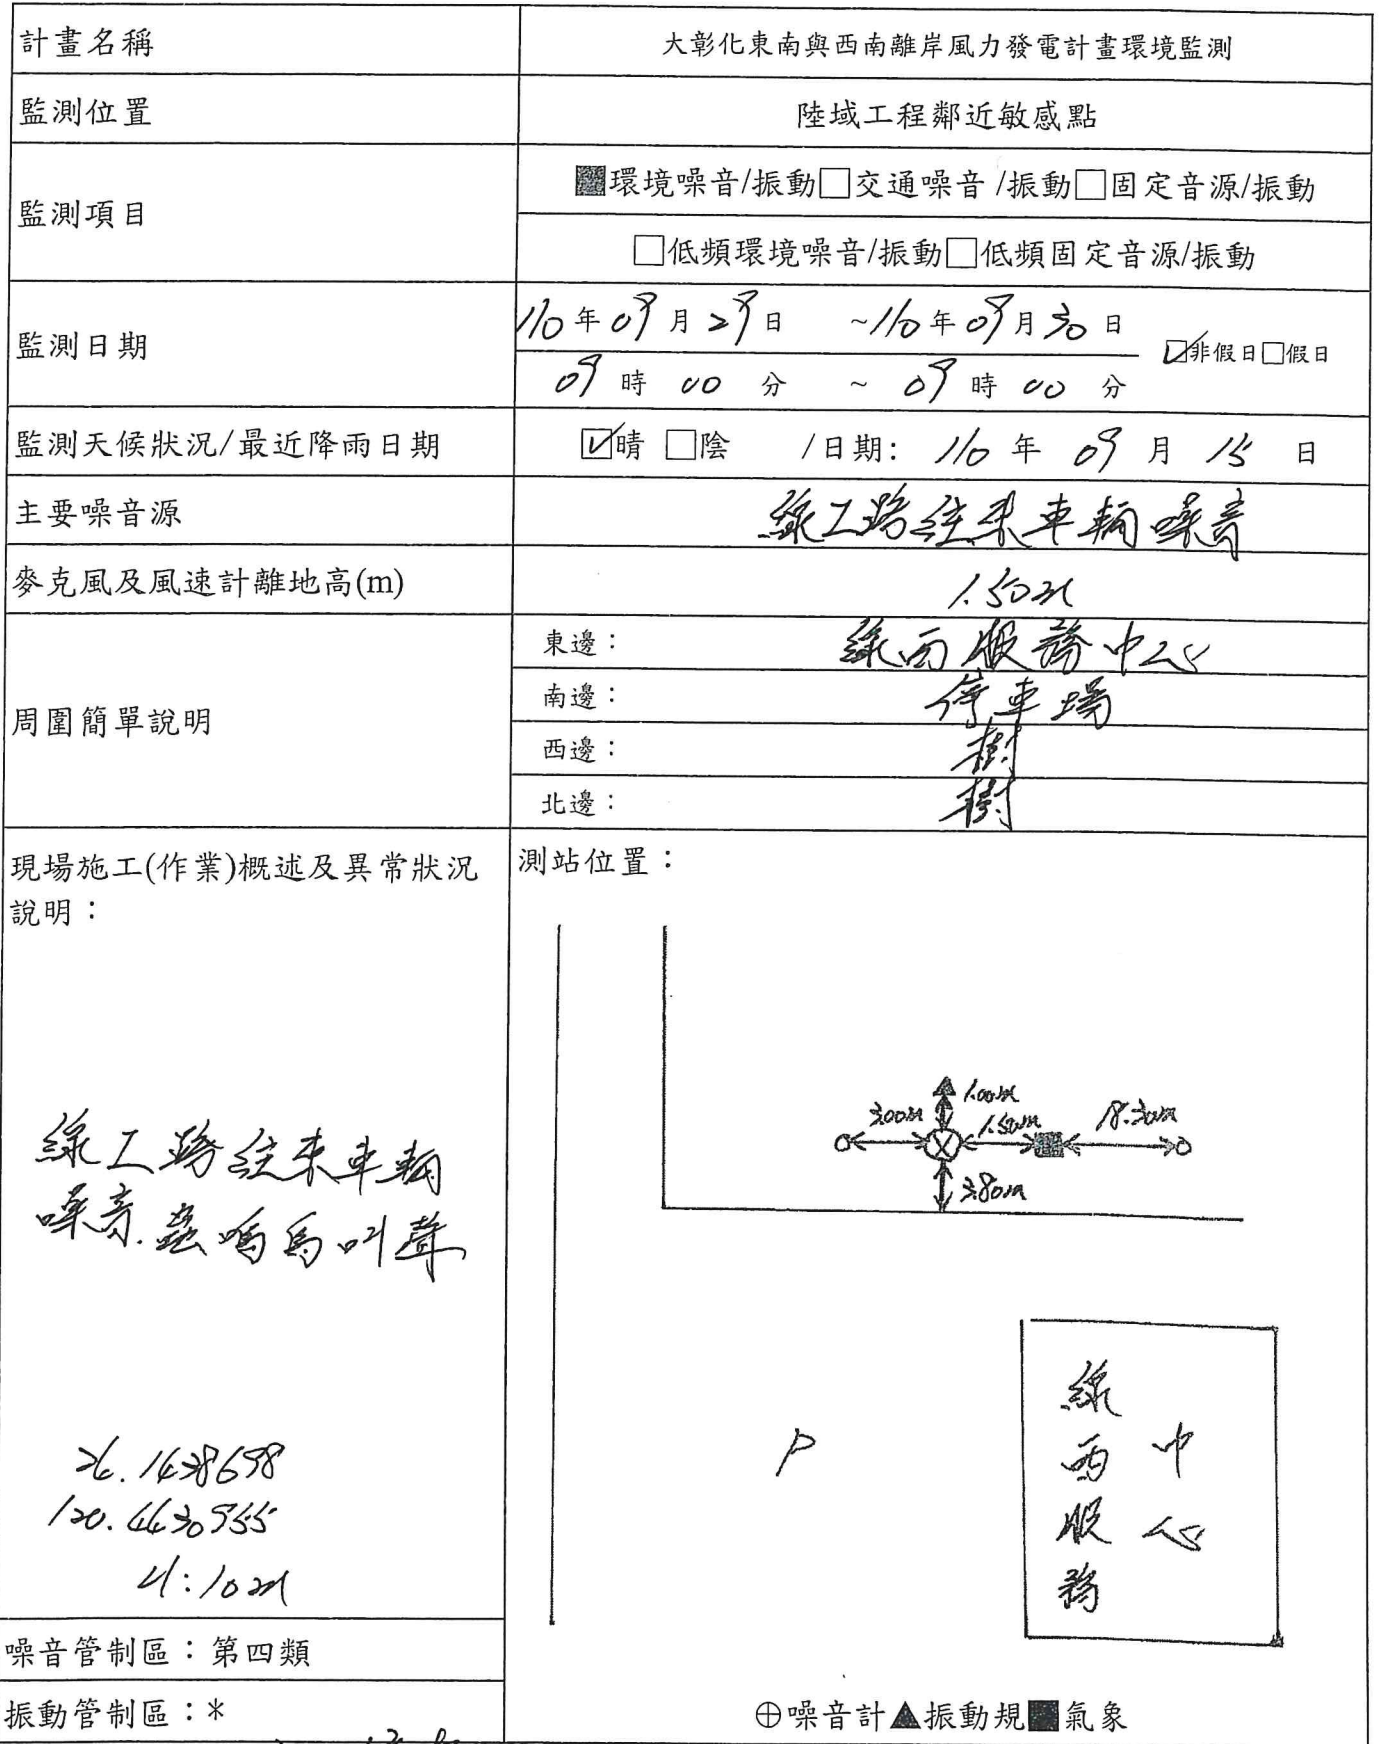 計畫名稱 大彰化東南與西南離岸風力發電計畫環境監測
監測位置 陸域工程鄰近敏感點
監測項目 ■環境噪音/振動□交通噪音 /振動□固定音源/振動
□低頻環境噪音/振動□低頻固定音源/振動
監測日期 110年09月29日 ~110年09月30日 ☑非假日□假日
09時00分 ~ 09時00分
監測天候狀況/最近降雨日期 ☑晴 □陰 /日期: 110年09月15日
主要噪音源 線工路往來車輛噪音
麥克風及風速計離地高(m) 1.50m
周圍簡單說明 東邊: 線西服務中心
南邊: 停車場
西邊: 樹
北邊: 樹
現場施工(作業)概述及異常狀況
說明:
線工路往來車輛
噪音.蟲鳴鳥叫聲
120.4430955
測站位置:
1.00m
3.00m 1.50m 18.30m
3.80m
P
線西服務
中心
噪音管制區:第四類
振動管制區:*
⊕噪音計▲振動規■氣象